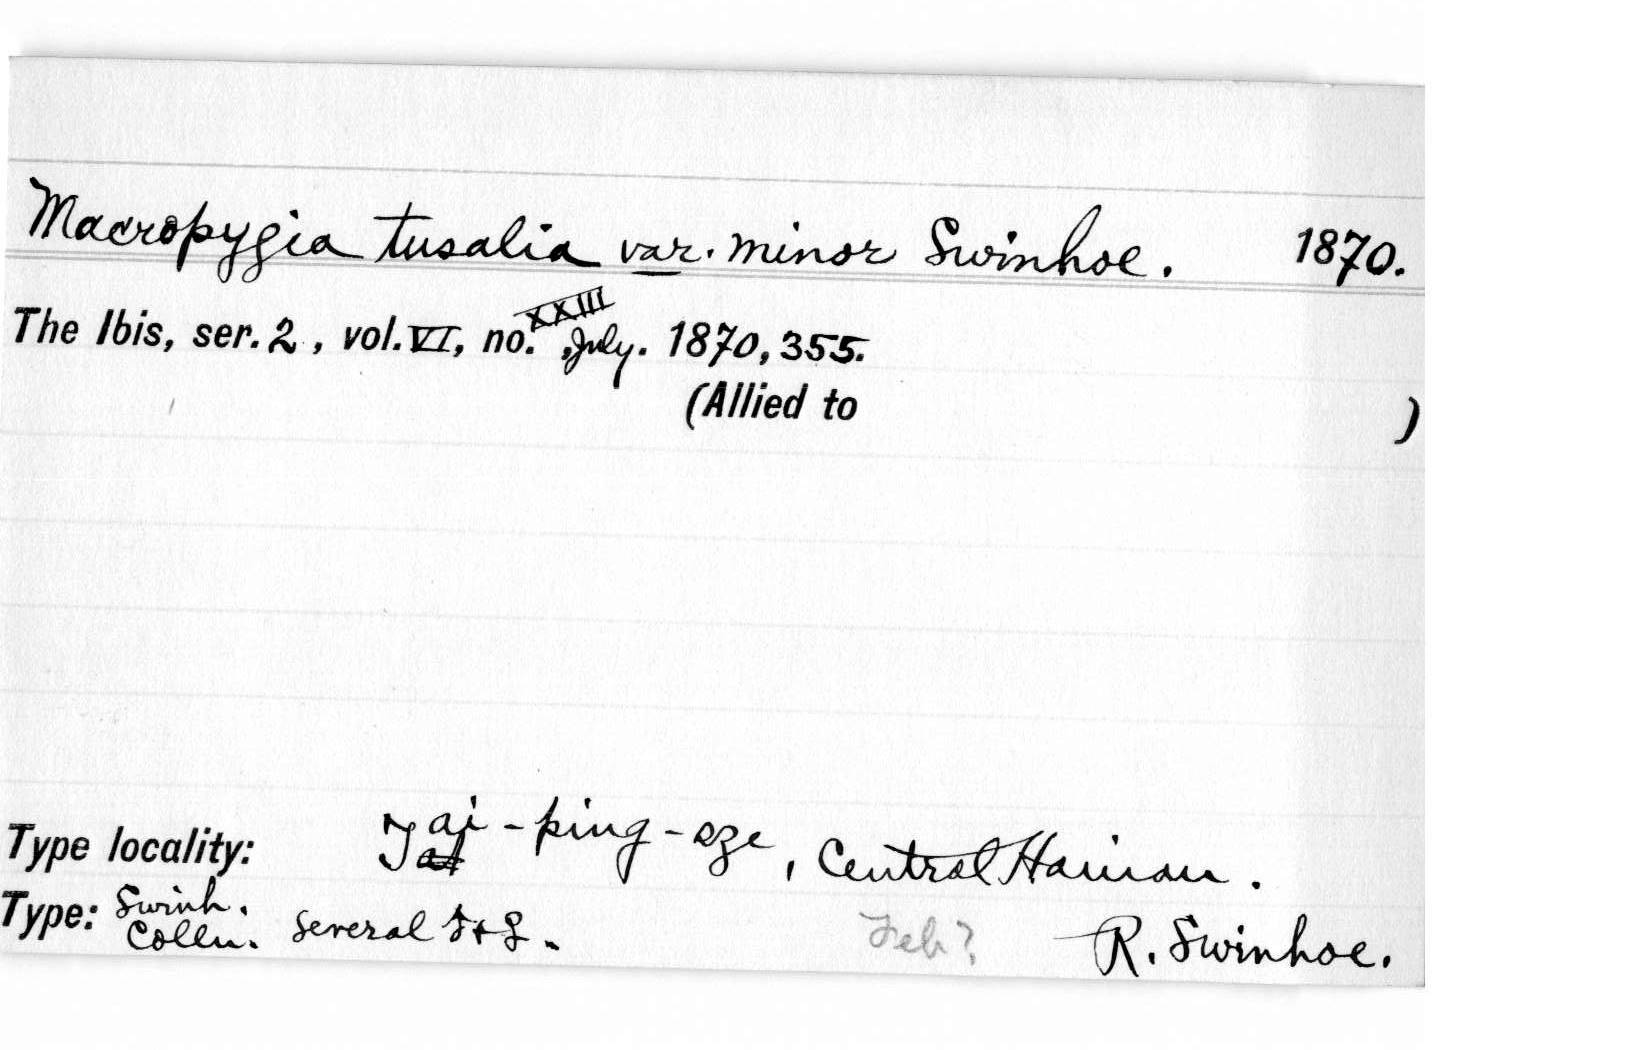 Macropygia tusalia var. minor Swinhoe. 1870.
The Ibis, ser. 2, vol. VI, no. XXIII, July. 1870, 355.
(Allied to )
Type locality: Yai-ping-sze, Central Hainan.
Type: Swinh. Colln. Several ♂ + ♀. Feb? R. Swinhoe.